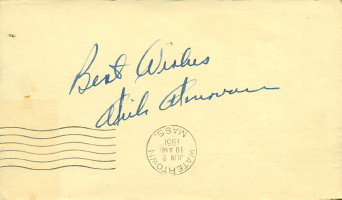 Best Wishes
Dick Donovan
WATERTOWN
MASS.
JUN 2
10 AM
1951